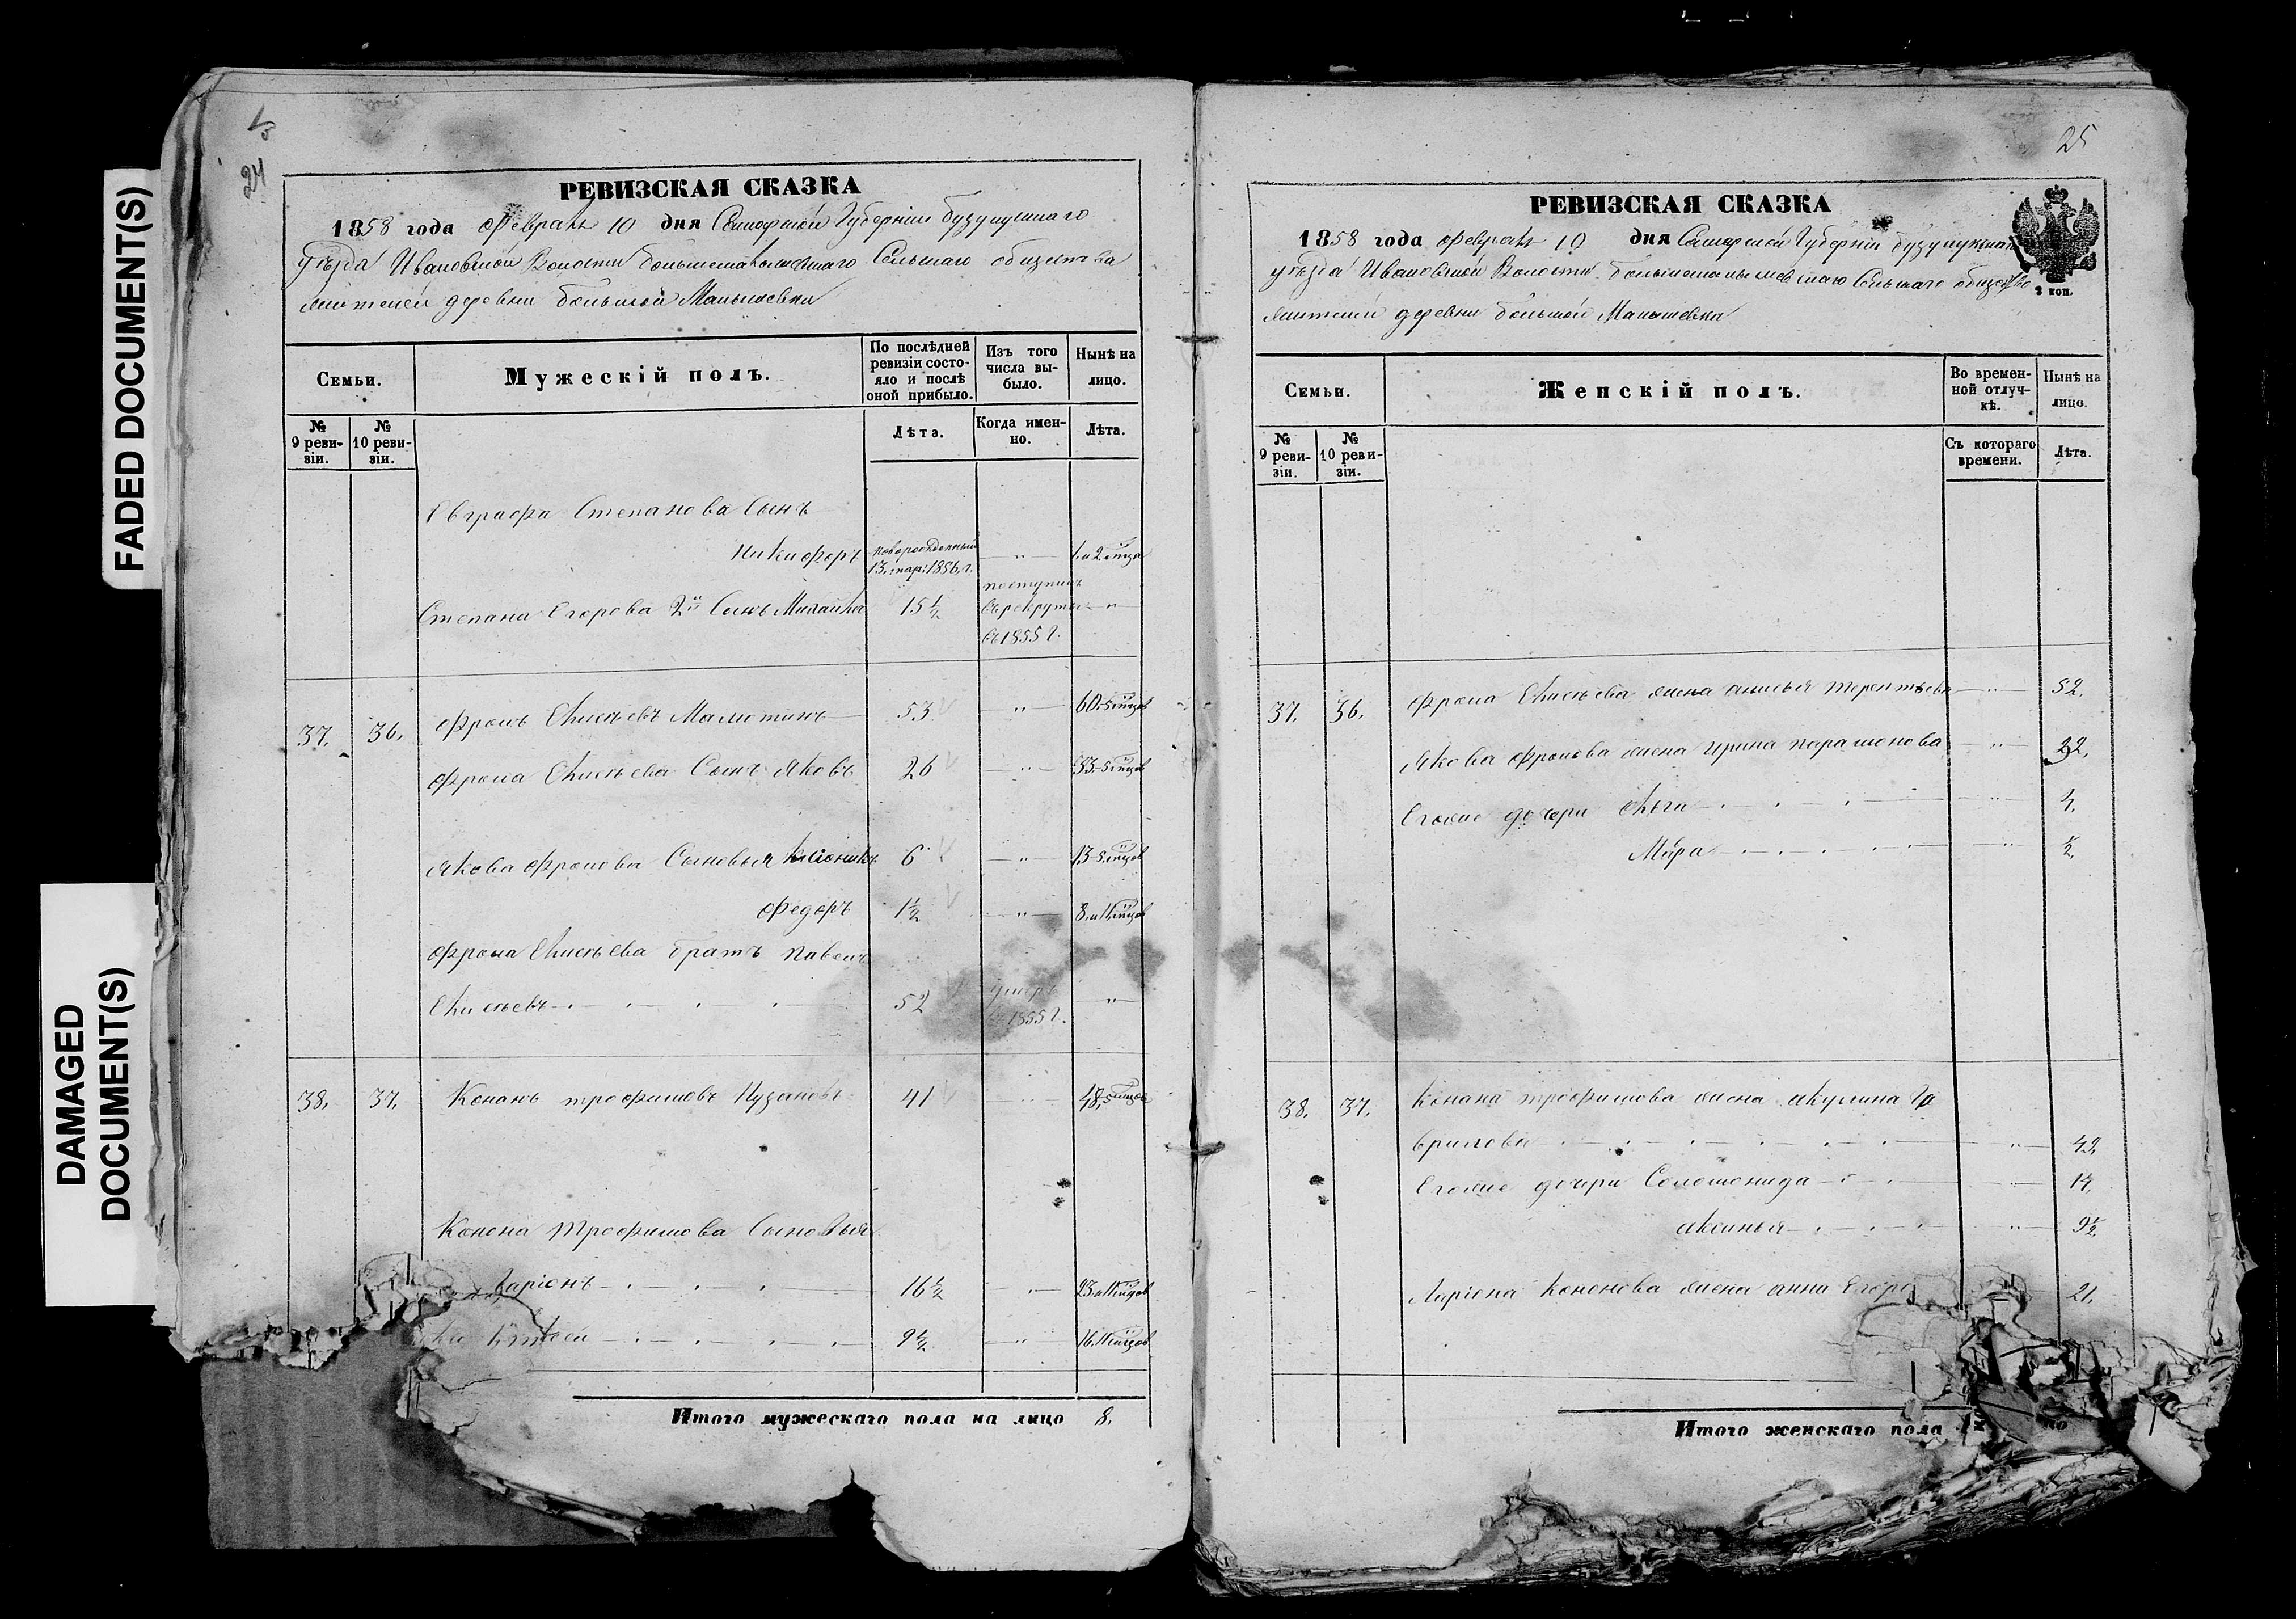 FADED DOCUMENT(S)
DAMAGED
DOCUMENT(S)
24
РЕВИЗСКАЯ СКАЗКА
1858 года Февраля 10 дня Самарской Губерніи Бузулукскаго
уѣзда Ивановской Волости Большемалышевскаго Сельскаго общества
жителей деревни Большой Малышевки
Семьи.
Мужескій полъ.
По послѣдней ревизіи состояло и послѣ оной прибыло.
Изъ того числа выбыло.
Нынѣ на лицо.
№ 9 ревизіи.
№ 10 ревизіи.
Лѣта.
Когда именно.
Лѣта.
Евграфа Степанова Сынъ
Никифоръ новорожденный 13. мар: 1856. г. — " — 1. и 2 мца
Степана Егорова 2й Сынъ Михайла 15 ½ поступилъ въ рекруты въ 1855 г. — " —
37. 36. Фролъ Елисѣевъ Малютинъ 53 — " — 60. 5 мцов
Фрола Елисѣева Сынъ Яковъ 26 — " — 33. 5 мцов
Якова Фролова Сыновья 6 — " — 13. 5 мцов
Федоръ 1½ — " — 8. и 11 мцов
Фрола Елисѣева братъ Павелъ
Елисѣевъ 52 умеръ въ 1855 г. — " —
38. 37. Конанъ Трофимовъ 41 — " — 48. 5 мцов
Конона Трофимова Сыновья
Ларіонъ 16 ½ — " — 23. и 11 мцов
9 ½ — " — 16. 11 мцов
Итого мужескаго пола на лицо 8.
25
РЕВИЗСКАЯ СКАЗКА
1858 года Февраля 10 дня Самарской Губерніи Бузулукскаго
уѣзда Ивановской Волости Большемалышевскаго Сельскаго общества
жителей деревни Большой Малышевки
3 коп.
Семьи.
Женскій полъ.
Во временной отлучкѣ.
Нынѣ на лицо.
№ 9 ревизіи.
№ 10 ревизіи.
Съ котораго времени.
Лѣта.
37. 36. Фрола Елисѣева жена Анисья Терентьева — " — 52.
Якова Фролова жена Ирина Парамонова — " — 32.
Егоже дочери Ольга — " — 4.
Мара — " — ½.
38. 37. Конана Трофимова жена Акулина Га
врилова — " — 42.
Егоже дочери Соломонида — " — 14.
Аксинья — " — 9½.
Ларіона Кононова жена Анна Егоро 21.
Итого женскаго пола